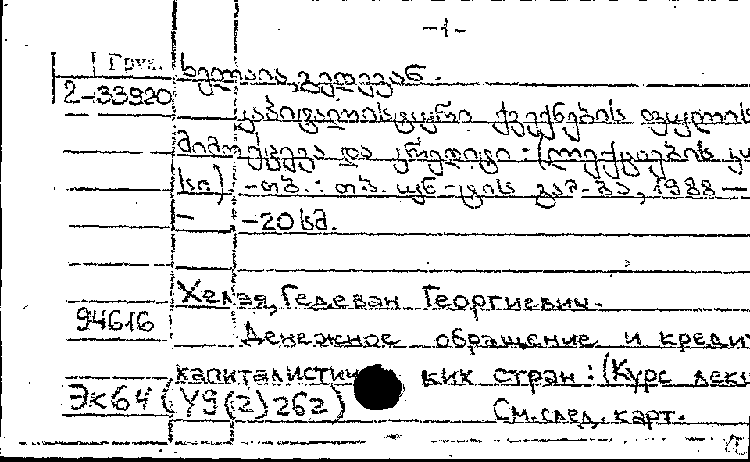 -1-
Груз.
ხელაია, გედევან.
2-33920
კაპიტალისტური ქვეყნების ფულის
მიმოქცევა და კრედიტი : (ლექციების კუ
რსი) - თბ. : თბ. უნ-ტის გამ-ბა, 1988 —
- -20 სმ.
Хелая, Гедеван Георгиевич.
94616
Денежное обращение и кредит
капиталистических стран : (Курс лекц
Эк64 (У9(2)262)
См. след. карт.